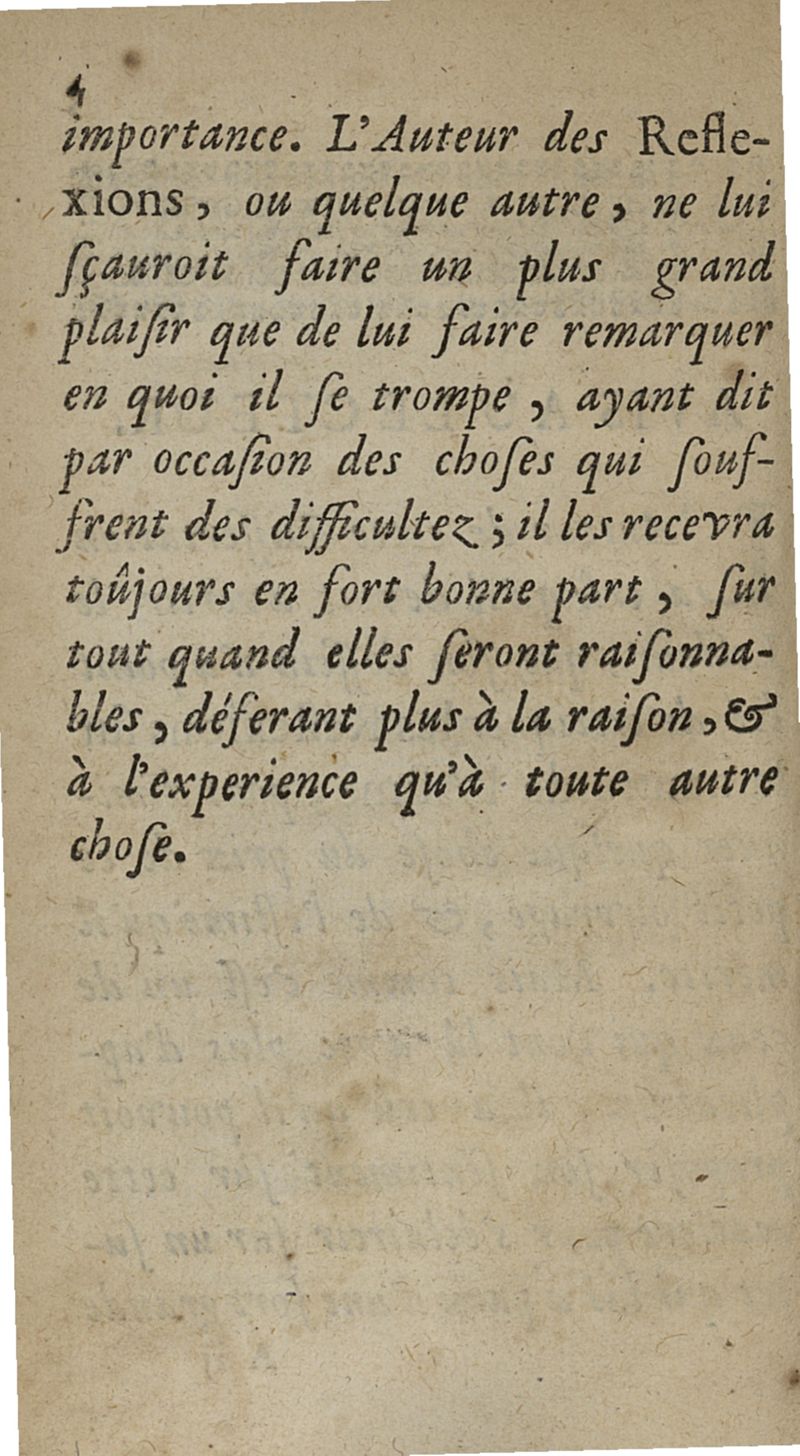 4
importance. L'Auteur des Refle-
xions, ou quelque autre, ne lui
ſçauroit faire un plus grand
plaiſir que de lui faire remarquer
en quoi il ſe trompe, ayant dit
par occaſion des choſes qui ſouf-
frent des difficultez; il les recevra
toûjours en fort bonne part, ſur
tout quand elles ſeront raiſonna-
bles, déferant plus à la raiſon, &
à l'experience qu'à toute autre
choſe.